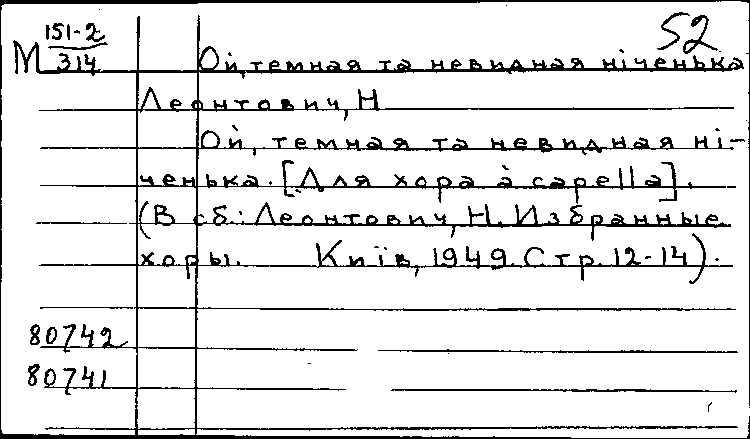 52
М 151-2
314
Ой, темная та невидная ніченька
Леонтович, Н
Ой, темная та невидная ні-
ченька. [Для хора à capella].
(В сб: Леонтович, Н. Избранные
хоры. Київ, 1949. Стр. 12-14).
80742
80741